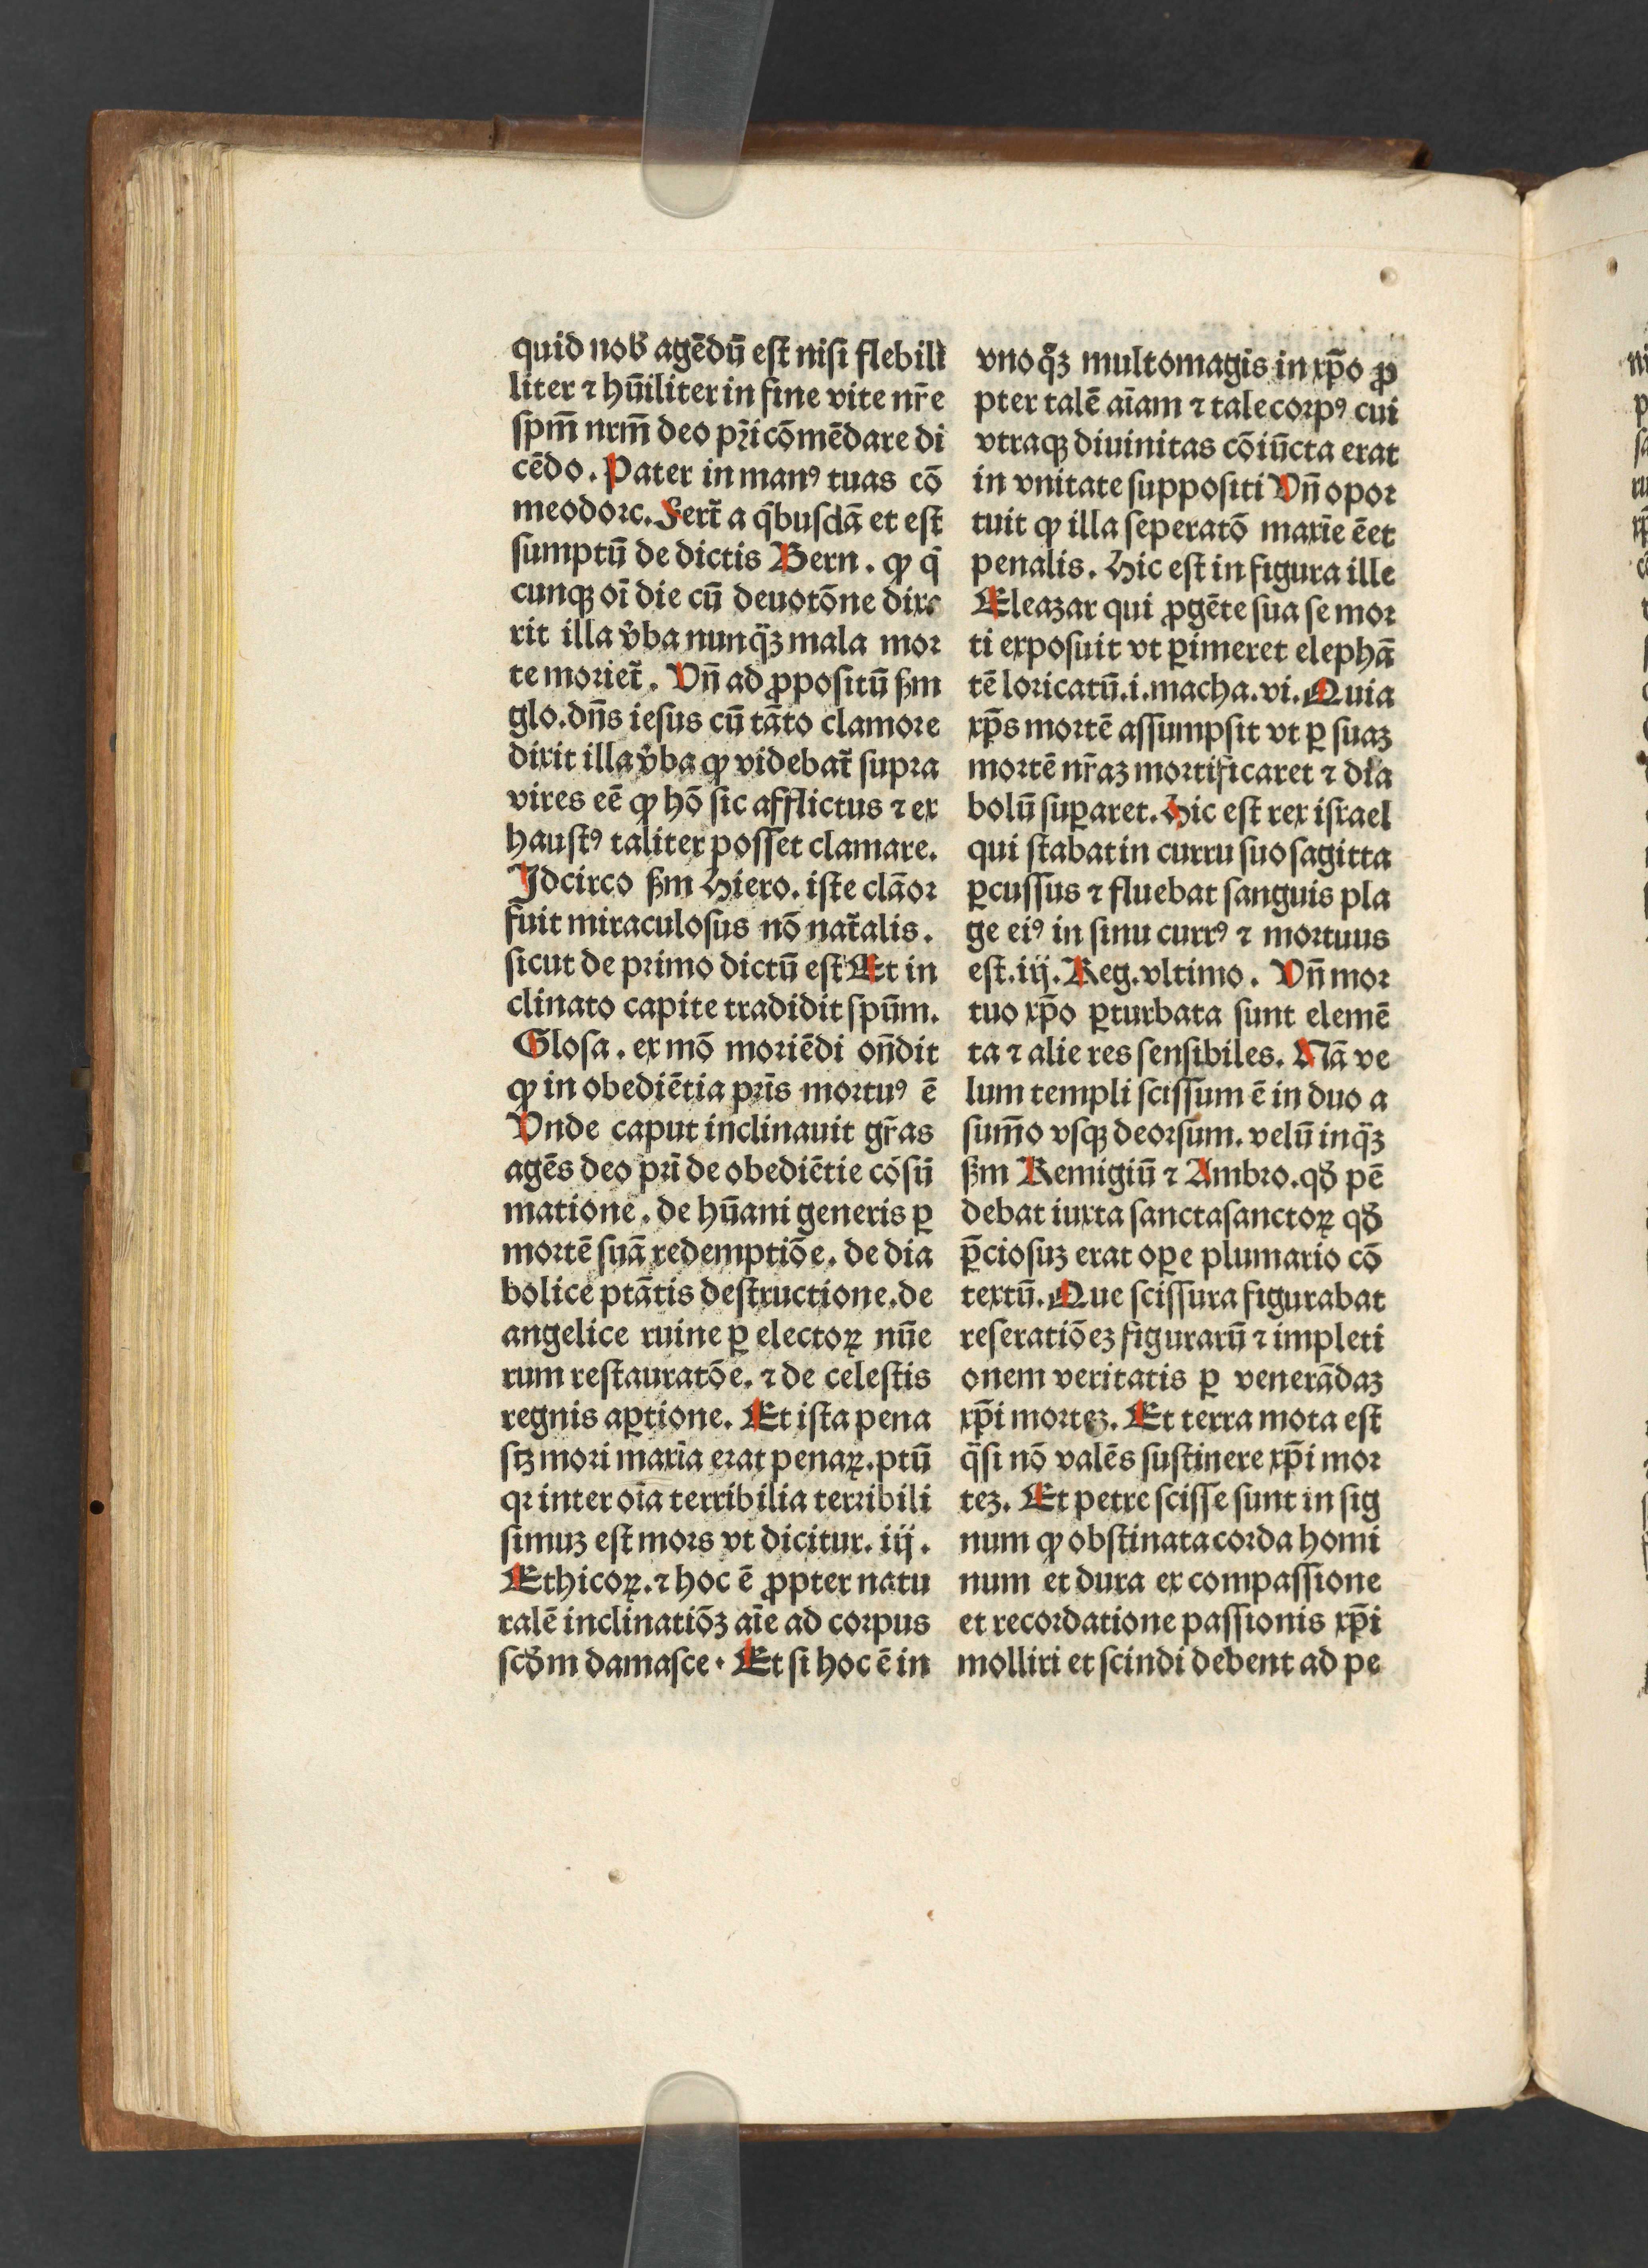 quid nob̕ agēdū eſt niſi flebilī
liter ⁊ hūiliter in fine vite nr̄e
ſpm̄ nrm̄ deo pr̄i cōmēdare di
cēdo. Pater in manꝰ tuas cō
meodorc. Fert̄ a q̄buſdā et eſt
ſumptū de dictis Bern. ꝙ q̄
cunqꝫ oī die cū deuotōne dixe
rit illa v̄ba nunq̄ꝫ mala mor
te moriet̄. Vn̄ ad ꝓpoſitū ẜm
glo. dn̄s ieſus cū tāto clamore
dixit illa v̄ba ꝙ videbat̄ ſupra
vires eē ꝙ hō ſic afflictus ⁊ ex
hauſtꝰ taliter poſſet clamare.
Idcirco ẜm Hiero. iſte clāor
fuit miraculoſus nō nat̄alis.
ſicut de primo dictū eſt Et in
clinato capite tradidit ſpūm.
Gloſa. ex mō moriēdi on̄dit
ꝙ in obediētia prīs mortuꝰ ē
Vnde caput inclinauit gr̄as
agēs deo prī de obediētie cōſū
matione. de hūani generis ꝑ
mortē ſuā redemptiōe. de dia
bolice ptātis deſtructione. de
angelice ruine ꝑ electoꝝ nūe
rum reſtauratōe. ⁊ de celeſtis
regnis aꝑtione. Et iſta pena
ſꝫ mori maxīa erat penaꝝ. ptū
qꝛ inter oīa terribilia terribili
ſimuꝫ eſt mors vt dicitur. iij.
Ethicoꝝ. ⁊ hoc ē ꝓpter natu
ralē inclinatiōꝫ aīe ad corpus
ſcd̄m damaſce. Et ſi hoc ē in
vno q̊ꝫ multomagis in xp̄o ꝓ
pter talē aīam ⁊ tale corpꝰ cui
vtraqꝫ diuinitas cōiūcta erat
in vnitate ſuppoſiti Vn̄ opor
tuit ꝙ illa ſeperatō maxīe ēet
penalis. Hic eſt in figura ille
Eleazar qui ꝓgēte ſua ſe mor
ti expoſuit vt ꝑimeret elephā
tē loricatū. i. macha. vi. Quia
xp̄s mortē aſſumpſit vt ꝑ ſuaꝫ
mortē nr̄aꝫ mortificaret ⁊ dīa
bolū ſuꝑaret. Hic eſt rex iſrael
qui ſtabat in curru ſuo ſagitta
ꝑcuſſus ⁊ fluebat ſanguis pla
ge eiꝰ in ſinu currꝰ ⁊ mortuus
eſt. iij. Reg. vltimo. Vn̄ mor
tuo xp̄o ꝑturbata ſunt elemē
ta ⁊ alie res ſenſibiles. Nā ve
lum templi ſciſſum ē in duo a
ſum̄o vſqꝫ deorſum. velū inq̄ꝫ
ẜm Remigiū ⁊ Ambro. qd̄ pē
debat iuxta ſanctaſanctoꝝ qd̄
p̄cioſuꝫ erat oꝑe plumario cō
textū. Que ſciſſura figurabat
reſeratiōeꝫ figurarū ⁊ impleti
onem veritatis ꝑ venerādaꝫ
xp̄i morteꝫ. Et terra mota eſt
q̄ſi nō valēs ſuſtinere xp̄i mor
teꝫ. Et petre ſciſſe ſunt in ſig
num ꝙ obſtinata corda homi
num et dura ex compaſſione
et recordatione paſſionis xp̄i
molliri et ſcindi debent ad pe